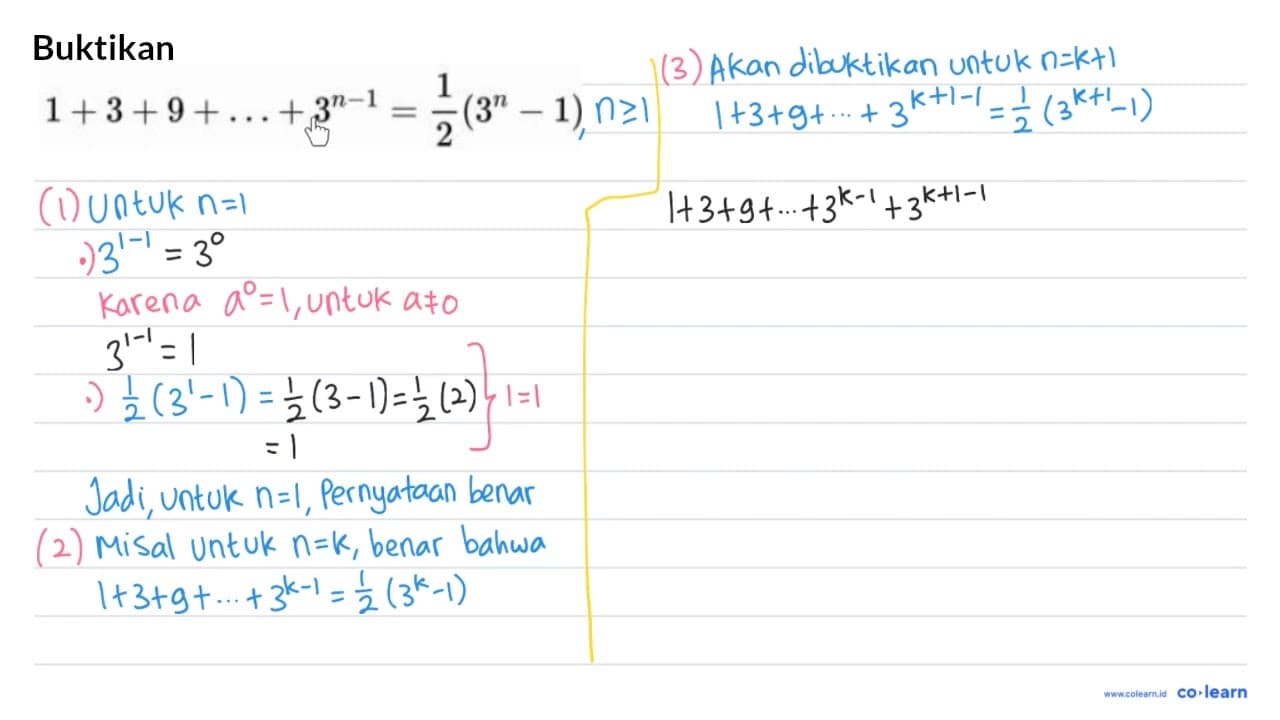 Buktikan
1 + 3 + 9 + ... + 3^{n-1} = \frac{1}{2}(3^n - 1), n≥1
(1) Untuk n=1
•) 3^{1-1} = 3^0
Karena a^0=1, untuk a≠0
3^{1-1} = 1
•) \frac{1}{2}(3^1-1) = \frac{1}{2}(3-1) = \frac{1}{2}(2) } 1=1
= 1
Jadi, untuk n=1, Pernyataan benar
(2) Misal untuk n=k, benar bahwa
1+3+9+...+3^{k-1} = \frac{1}{2}(3^k-1)
(3) Akan dibuktikan untuk n=k+1
1+3+9+...+3^{k+1-1} = \frac{1}{2}(3^{k+1}-1)
1+3+9+...+3^{k-1}+3^{k+1-1}
www.colearn.id co·learn